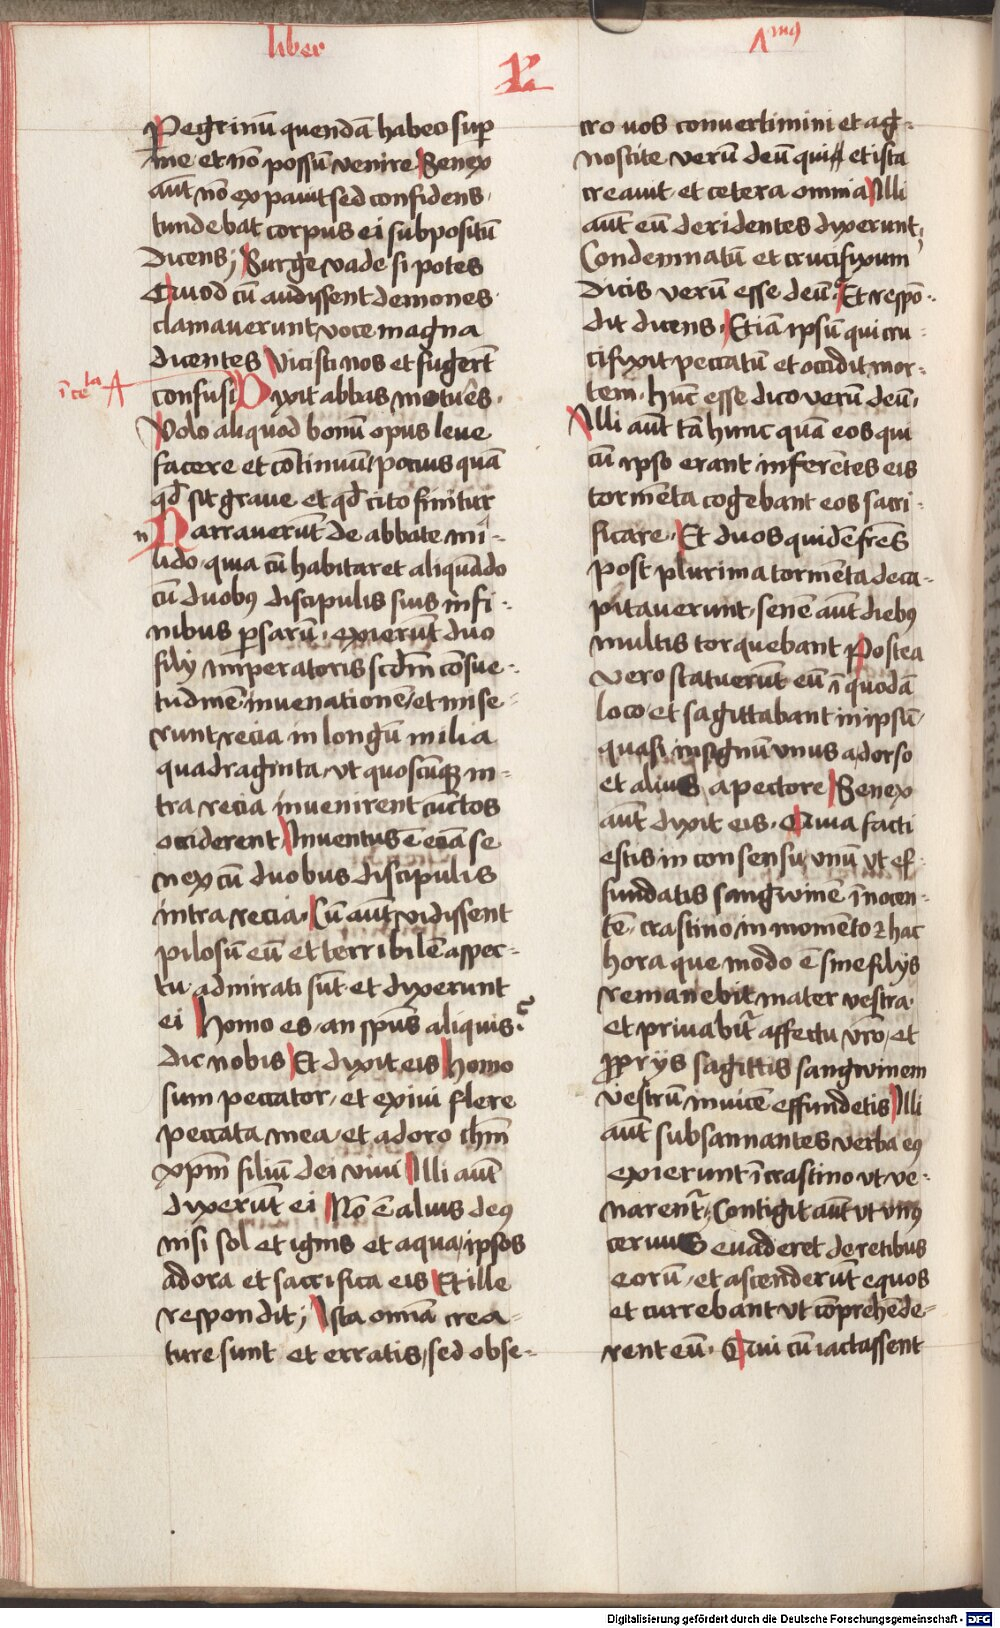 liber
Iᵐᵘˢ
Pegrinū quendā habeo sup
me et nō possū venire Senex
aūt nō expauit sed confidens
tundebat corpus ei subpositū
Dicens; Surge vade si potes
Quod cū audissent demones
clamauerunt voce magna
dicentes Vicisti nos et fugerūt
confusi Dixit abbas motues.
Volo aliquod bonū opus leue
facere et cōtinuū pocius quā
qd sit graue et qd cito finitur
Narrauerūt de abbate mi-
lido quia cū habitaret aliquādo
cū duobꝯ discipulis suis in fi-
nibus psarū. exierūt duo
filij imperatoris scdm cōsue-
tudinē in venationē et mise-
runt recia in longū milia
quadraginta ut quoscūq in-
tra recia invenirent cūctos
occiderent Inventus ē ecia se
nex cū duobus discipulis
intra recia. Cū aūt vidissent
pilosū eū et terribilē aspec-
tu admirati sūt et dixerunt
ei Homo es an spūs aliquis.
dic nobis Et dixit eis homo
sum peccator et exiui flere
peccata mea et adoro ihm
xpm filiū dei viui Illi aūt
dixerūt ei Nō ē alius deꝯ
nisi sol et ignis et aqua ipsos
adora et sacrifica eis Et ille
respondit; Ista omīa crea-
ture sunt et erratis sed obse-
cro uos convertimini et ag-
noscite verū deū qui et ista
creauit et cetera omnia Illi
aūt eū deridentes dixerunt
Condemnatū et crucifixum
dicis verū esse deū. Et respō-
dit dicens. Etiā ipsū qui cru-
cifixit peccatū et occidit mor-
tem. hūc esse dico verū deū.
Illi aūt tā hunc quā eos qui
cū ipso erant inferētes eis
tormēta cogebant eos sacri-
ficare. Et duos quidē frēs
post plurima tormēta deca-
pitauerunt. senē aūt diebꝯ
multis torquebant Postea
vero statuerūt eū ī quodā
loco et sagittabant in ipsū
quasi in signū vnus a dorso
et alius a pectore Senex
aūt dixit eis. Quia facti
estis in consensu vnū ut ef-
fundatis sangwinē īnocen-
tē. crastino in momēto ⁊ hac
hora que modo ē sine filijs
remanebit mater vestra.
et priuabit affectu vrō et
pprijs sagittis sangwinem
vestrū inuicē effundetis Illi
aūt subsannantes verba eꝯ
exierunt ī crastino ut ve-
narent. Contigit aūt ut vnꝯ
ceruus euaderet de retibus
eorū et ascenderūt equos
et currebant ut cōprehēde-
rent eū. Qui cū iactassent
Digitalisierung gefördert durch die Deutsche Forschungsgemeinschaft - DFG